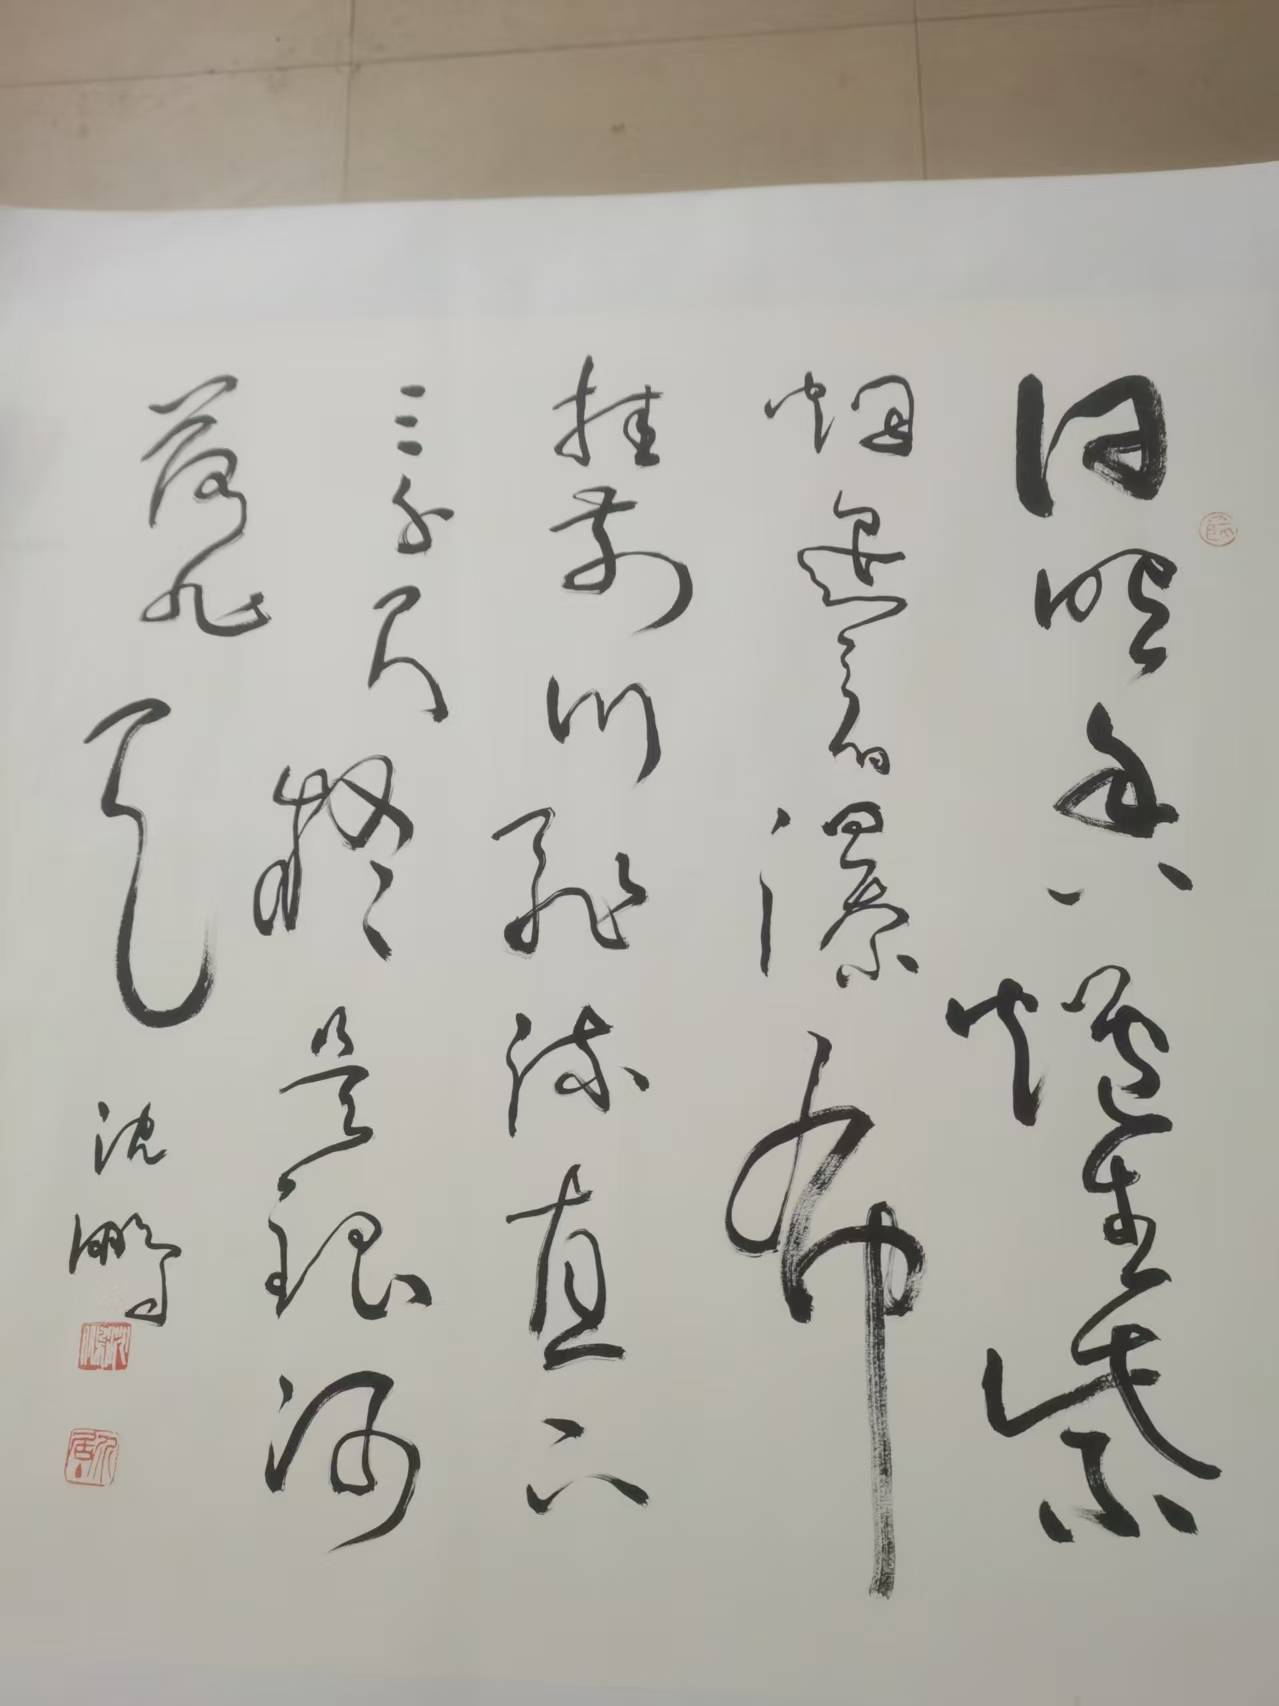 日照香爐生紫
烟遥看瀑布
挂前川飛流直下
三千尺疑是銀河
落九天
沈鵬